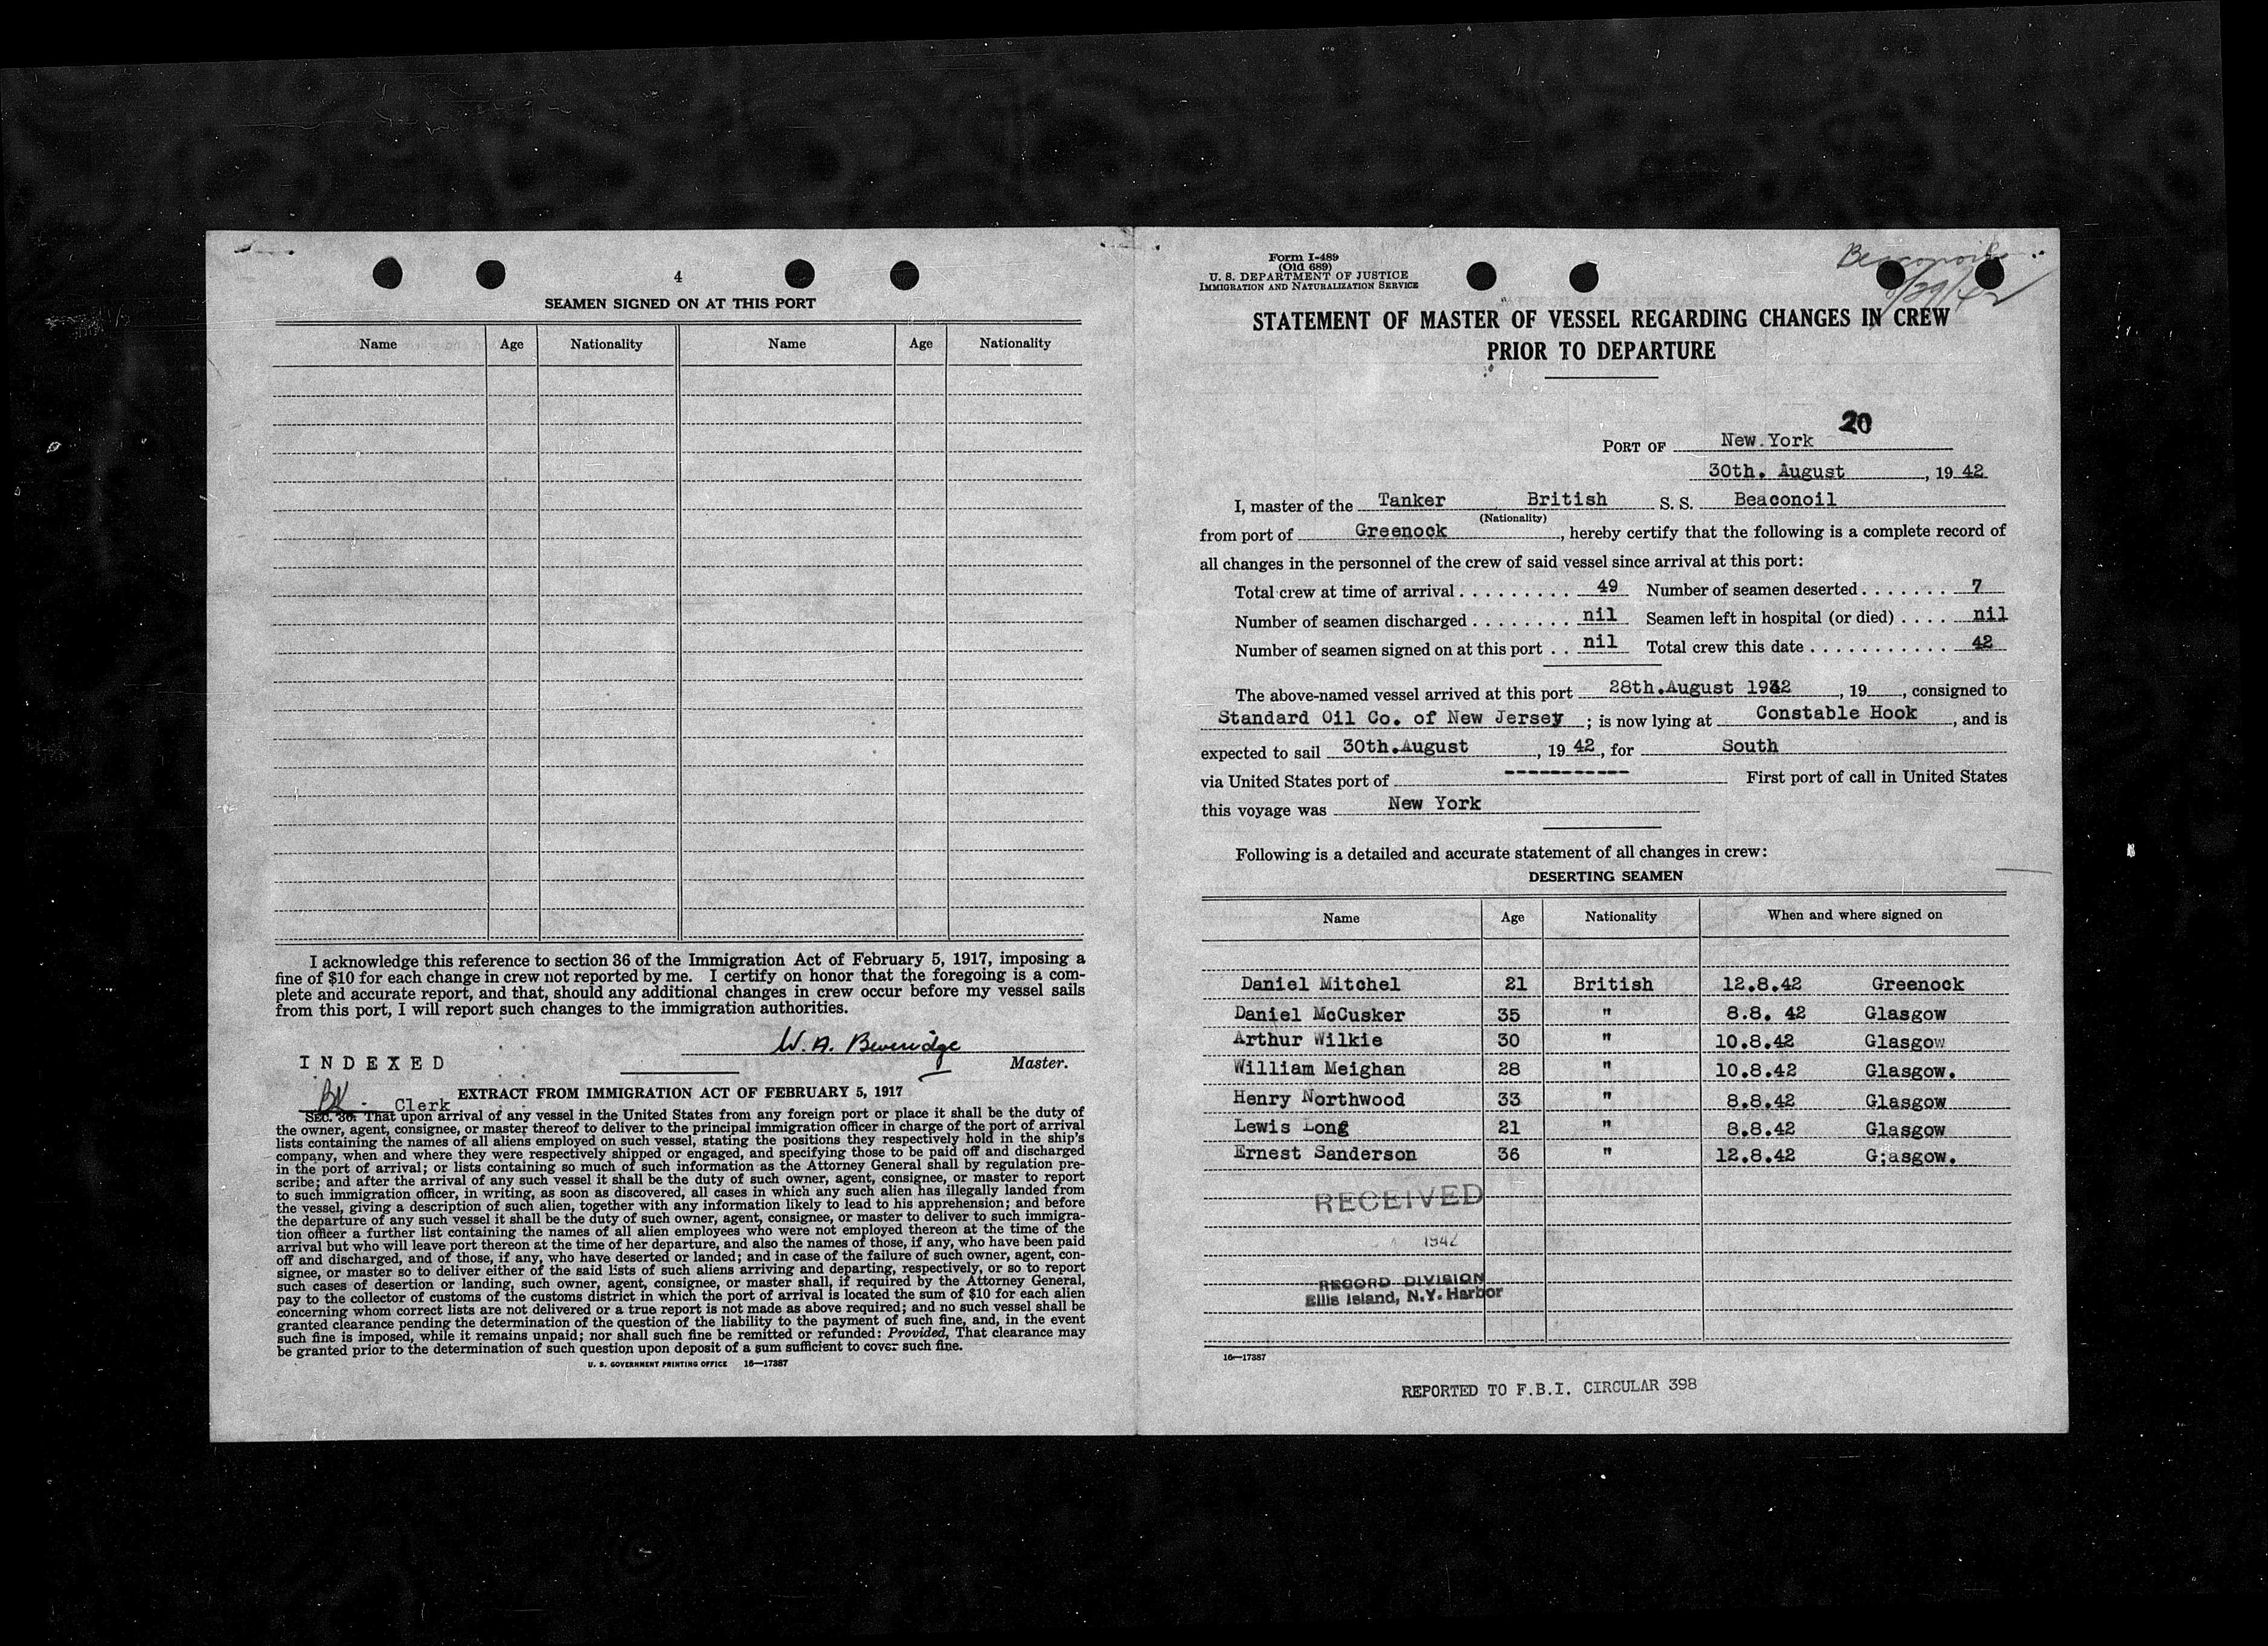 4
SEAMEN SIGNED ON AT THIS PORT
Name Age Nationality Name Age Nationality
I acknowledge this reference to section 36 of the Immigration Act of February 5, 1917, imposing a
fine of $10 for each change in crew not reported by me. I certify on honor that the foregoing is a com-
plete and accurate report, and that, should any additional changes in crew occur before my vessel sails
from this port, I will report such changes to the immigration authorities.
W. A. Beveridge
INDEXED Master.
EXTRACT FROM IMMIGRATION ACT OF FEBRUARY 5, 1917
Clerk
SEC. 36. That upon arrival of any vessel in the United States from any foreign port or place it shall be the duty of
the owner, agent, consignee, or master thereof to deliver to the principal immigration officer in charge of the port of arrival
lists containing the names of all aliens employed on such vessel, stating the positions they respectively hold in the ship's
company, when and where they were respectively shipped or engaged, and specifying those to be paid off and discharged
in the port of arrival; or lists containing so much of such information as the Attorney General shall by regulation pre-
scribe; and after the arrival of any such vessel it shall be the duty of such owner, agent, consignee, or master to report
to such immigration officer, in writing, as soon as discovered, all cases in which any such alien has illegally landed from
the vessel, giving a description of such alien, together with any information likely to lead to his apprehension; and before
the departure of any such vessel it shall be the duty of such owner, agent, consignee, or master to deliver to such immigra-
tion officer a further list containing the names of all alien employees who were not employed thereon at the time of the
arrival but who will leave port thereon at the time of her departure, and also the names of those, if any, who have been paid
off and discharged, and of those, if any, who have deserted or landed; and in case of the failure of such owner, agent, con-
signee, or master so to deliver either of the said lists of such aliens arriving and departing, respectively, or so to report
such cases of desertion or landing, such owner, agent, consignee, or master shall, if required by the Attorney General,
pay to the collector of customs of the customs district in which the port of arrival is located the sum of $10 for each alien
concerning whom correct lists are not delivered or a true report is not made as above required; and no such vessel shall be
granted clearance pending the determination of the question of the liability to the payment of such fine, and, in the event
such fine is imposed, while it remains unpaid; nor shall such fine be remitted or refunded: Provided, That clearance may
be granted prior to the determination of such question upon deposit of a sum sufficient to cover such fine.
U. S. GOVERNMENT PRINTING OFFICE 16—17387
Form I-489
(Old 689)
U. S. DEPARTMENT OF JUSTICE
IMMIGRATION AND NATURALIZATION SERVICE
Beaconoil
STATEMENT OF MASTER OF VESSEL REGARDING CHANGES IN CREW
PRIOR TO DEPARTURE
20
PORT OF New York
30th. August, 19 42
I, master of the Tanker British S. S. Beaconoil
(Nationality)
from port of Greenock, hereby certify that the following is a complete record of
all changes in the personnel of the crew of said vessel since arrival at this port:
Total crew at time of arrival . . . . . . . . . 49 Number of seamen deserted . . . . . . . 7
Number of seamen discharged . . . . . . . . nil Seamen left in hospital (or died) . . . . nil
Number of seamen signed on at this port . . nil Total crew this date . . . . . . . . . . . 42
The above-named vessel arrived at this port 28th.August 1942, 19 , consigned to
Standard Oil Co. of New Jersey ; is now lying at Constable Hook, and is
expected to sail 30th.August, 19 42, for South
via United States port of ----------- First port of call in United States
this voyage was New York
Following is a detailed and accurate statement of all changes in crew:
DESERTING SEAMEN
Name Age Nationality When and where signed on
Daniel Mitchel 21 British 12.8.42 Greenock
Daniel McCusker 35 " 8.8. 42 Glasgow
Arthur Wilkie 30 " 10.8.42 Glasgow
William Meighan 28 " 10.8.42 Glasgow.
Henry Northwood 33 " 8.8.42 Glasgow
Lewis Long 21 " 8.8.42 Glasgow
Ernest Sanderson 36 " 12.8.42 G;asgow.
RECEIVED
1942
RECORD DIVISION
Ellis Island, N.Y. Harbor
16—17387
REPORTED TO F.B.I. CIRCULAR 398